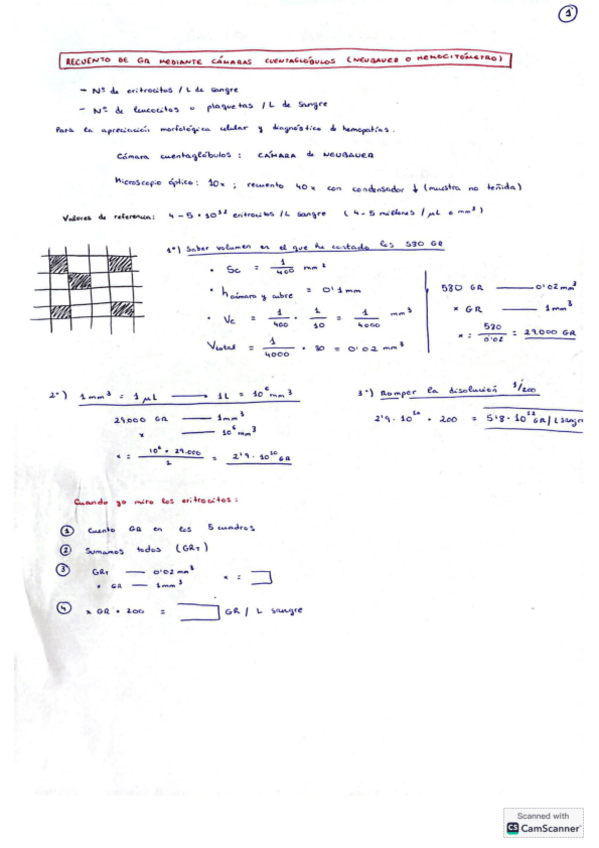 1
RECUENTO DE GR MEDIANTE CÁMARAS CUENTAGLÓBULOS (NEUBAUER O HEMOCITÓMETRO)
- Nº de eritrocitos / L de sangre
- Nº de leucocitos o plaquetas / L de sangre
Para la apreciación morfológica celular y diagnóstico de hemopatías.
Cámara cuentaglóbulos: CÁMARA de NEUBAUER
Microscopio óptico: 10x ; recuento 40x con condensador ↓ (muestra no teñida)
Valores de referencia: 4 - 5 · 10¹² eritrocitos / L sangre ( 4 - 5 millones / μL o mm³ )
1º) Saber volumen en el que he contado los 580 GR
· Sc = 1/400 mm²
· h cámara y cubre = 0'1 mm
· Vc = 1/400 · 1/10 = 1/4000 mm³
Vtotal = 1/4000 · 80 = 0'02 mm³
580 GR —— 0'02 mm³
x GR —— 1 mm³
x = 580/0'02 = 29.000 GR
2º) 1 mm³ = 1 μL —— 1 L = 10⁶ mm³
29.000 GR —— 1 mm³
x —— 10⁶ mm³
x = 10⁶ · 29.000/1 = 2'9 · 10¹⁰ GR
3º) Romper la disolución 1/200
2'9 · 10¹⁰ · 200 = 5'8 · 10¹² GR/L sangre
Cuando yo miro los eritrocitos:
1 Cuento GR en los 5 cuadros
2 Sumamos todos (GR_T)
3 GR_T —— 0'02 mm³
x GR —— 1 mm³ x =
4 x GR · 200 = GR / L sangre
Scanned with
CS CamScanner